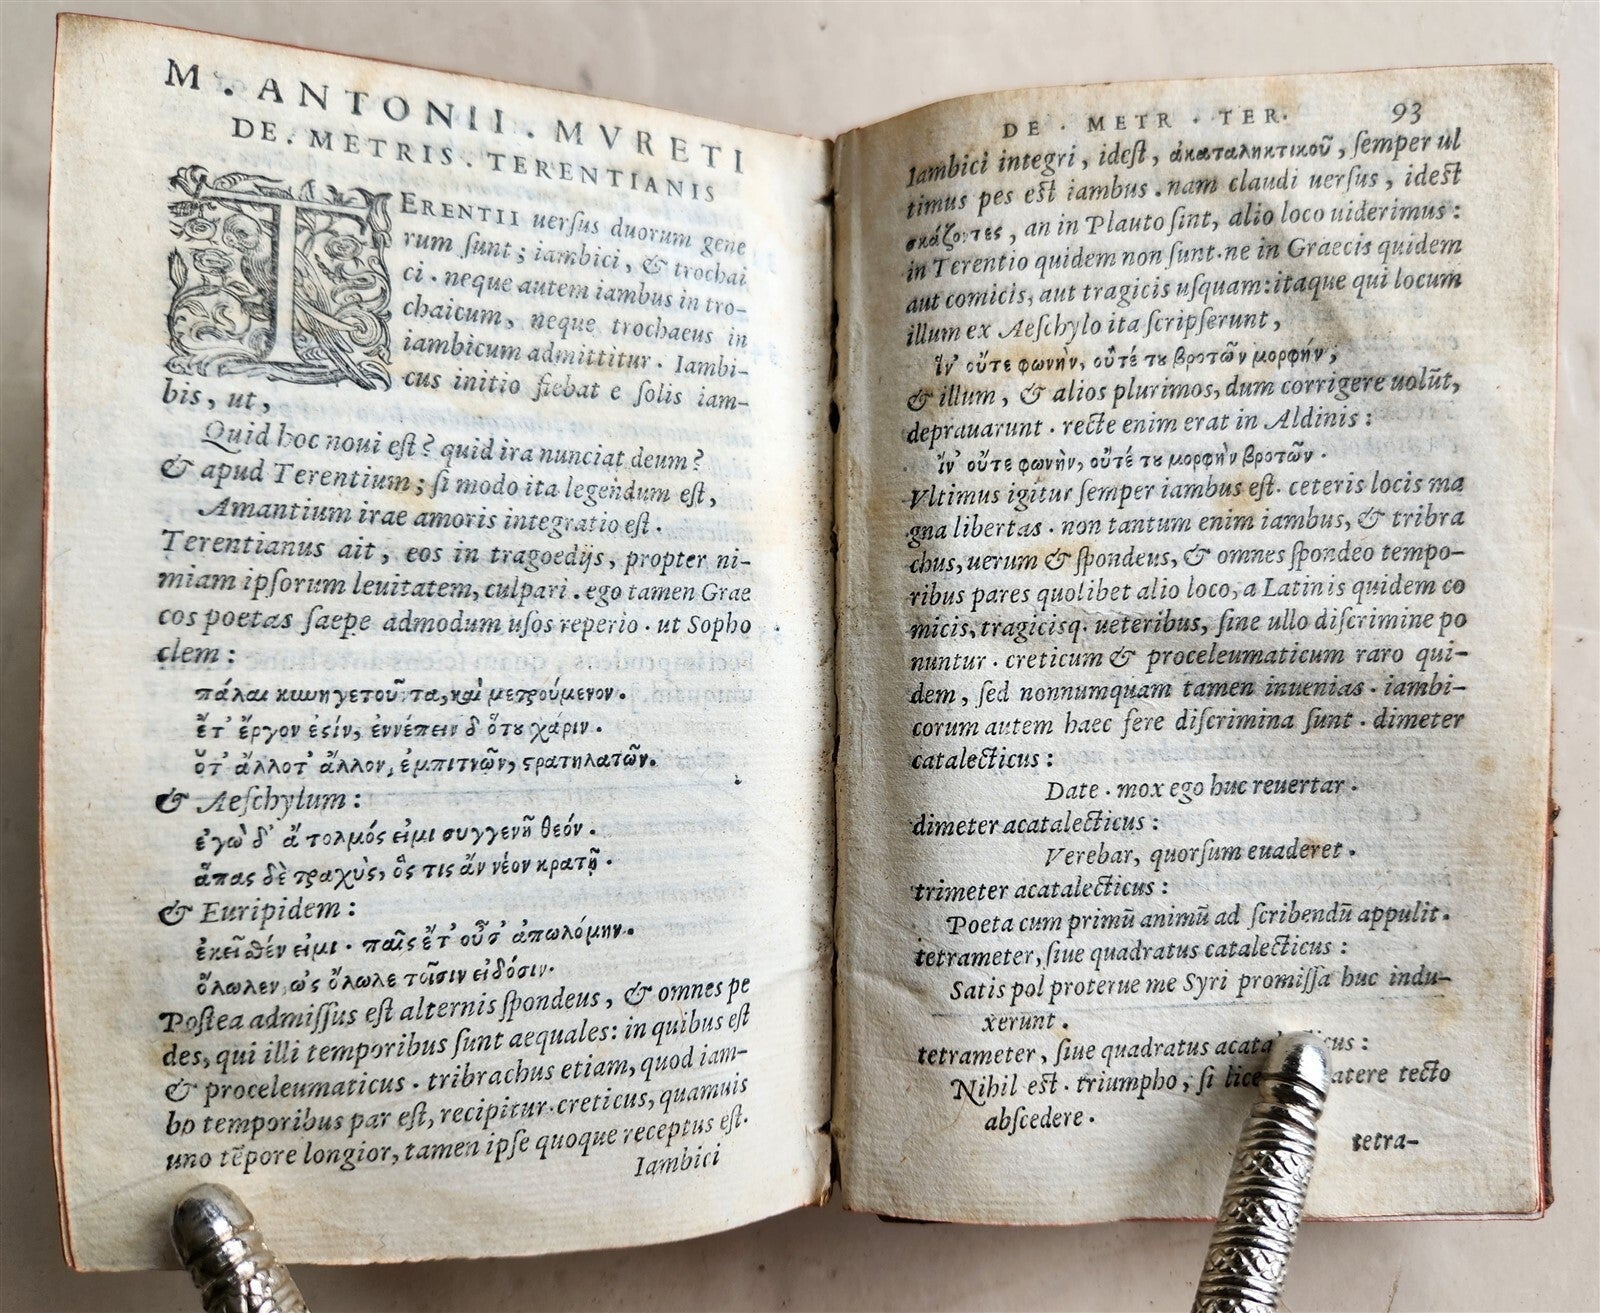 M. ANTONII. MVRETI
DE. METRIS. TERENTIANIS
TERENTII uersus duorum gene
rum sunt; iambici, & trochai
ci. neque autem iambus in tro-
chaicum, neque trochaeus in
iambicum admittitur. Iambi-
cus initio fiebat e solis iam-
bis, ut,
Quid hoc noui est? quid ira nunciat deum?
& apud Terentium; si modo ita legendum est,
Amantium irae amoris integratio est.
Terentianus ait, eos in tragoedijs, propter ni-
miam ipsorum leuitatem, culpari. ego tamen Grae
cos poetas saepe admodum usos reperio. ut Sopho
clem:
πάλαι κυνηγετοῦντα, καὶ μετρούμενον.
ἔτ' ἔργον ἐςίν, ἐννέπειν δ' ὅτου χάριν.
ὅτ' ἄλλοτ' ἄλλον, ἐμπιτνῶν, ςρατηλατῶν.
& Aeschylum:
ἐγὼ δ' ἄτολμός εἰμι συγγενῆ θεόν.
ἅπας δὲ τραχὺς, ὅς τις ἂν νέον κρατῇ.
& Euripidem:
ἐκεῖθέν εἰμι. παῖς ἔτ' οὖσ' ἀπωλόμην.
ὄλωλεν, ὡς ὄλωλε τοῖσιν εἰδόσιν.
Postea admissus est alternis spondeus, & omnes pe
des, qui illi temporibus sunt aequales: in quibus est
& proceleumaticus. tribrachus etiam, quod iam-
bo temporibus par est, recipitur. creticus, quamuis
uno tēpore longior, tamen ipse quoque receptus est.
Iambici
DE. METR. TER. 93
Iambici integri, idest, ἀκαταληκτικοῦ, semper ul
timus pes est iambus. nam claudi uersus, idest
σκάζοντες, an in Plauto sint, alio loco uiderimus:
in Terentio quidem non sunt. ne in Graecis quidem
aut comicis, aut tragicis usquam: itaque qui locum
illum ex Aeschylo ita scripserunt,
ἵν' οὔτε φωνὴν, οὔτέ του βροτῶν μορφήν;
& illum, & alios plurimos, dum corrigere uolūt,
deprauarunt. recte enim erat in Aldinis:
ἵν' οὔτε φωνὴν, οὔτέ του μορφὴν βροτῶν.
Vltimus igitur semper iambus est. ceteris locis ma
gna libertas. non tantum enim iambus, & tribra
chus, uerum & spondeus, & omnes spondeo tempo-
ribus pares quolibet alio loco, a Latinis quidem co
micis, tragicisq. ueteribus, sine ullo discrimine po
nuntur. creticum & proceleumaticum raro qui-
dem, sed nonnumquam tamen inuenias. iambi-
corum autem haec fere discrimina sunt. dimeter
catalecticus:
Date. mox ego huc reuertar.
dimeter acatalecticus:
Verebar, quorsum euaderet.
trimeter acatalecticus:
Poeta cum primū animū ad scribendū appulit.
tetrameter, siue quadratus catalecticus:
Satis pol proterue me Syri promissa huc indu-
xerunt.
tetrameter, siue quadratus acata dicus:
Nihil est. triumpho, si lice atere tecto
abscedere.
tetra-